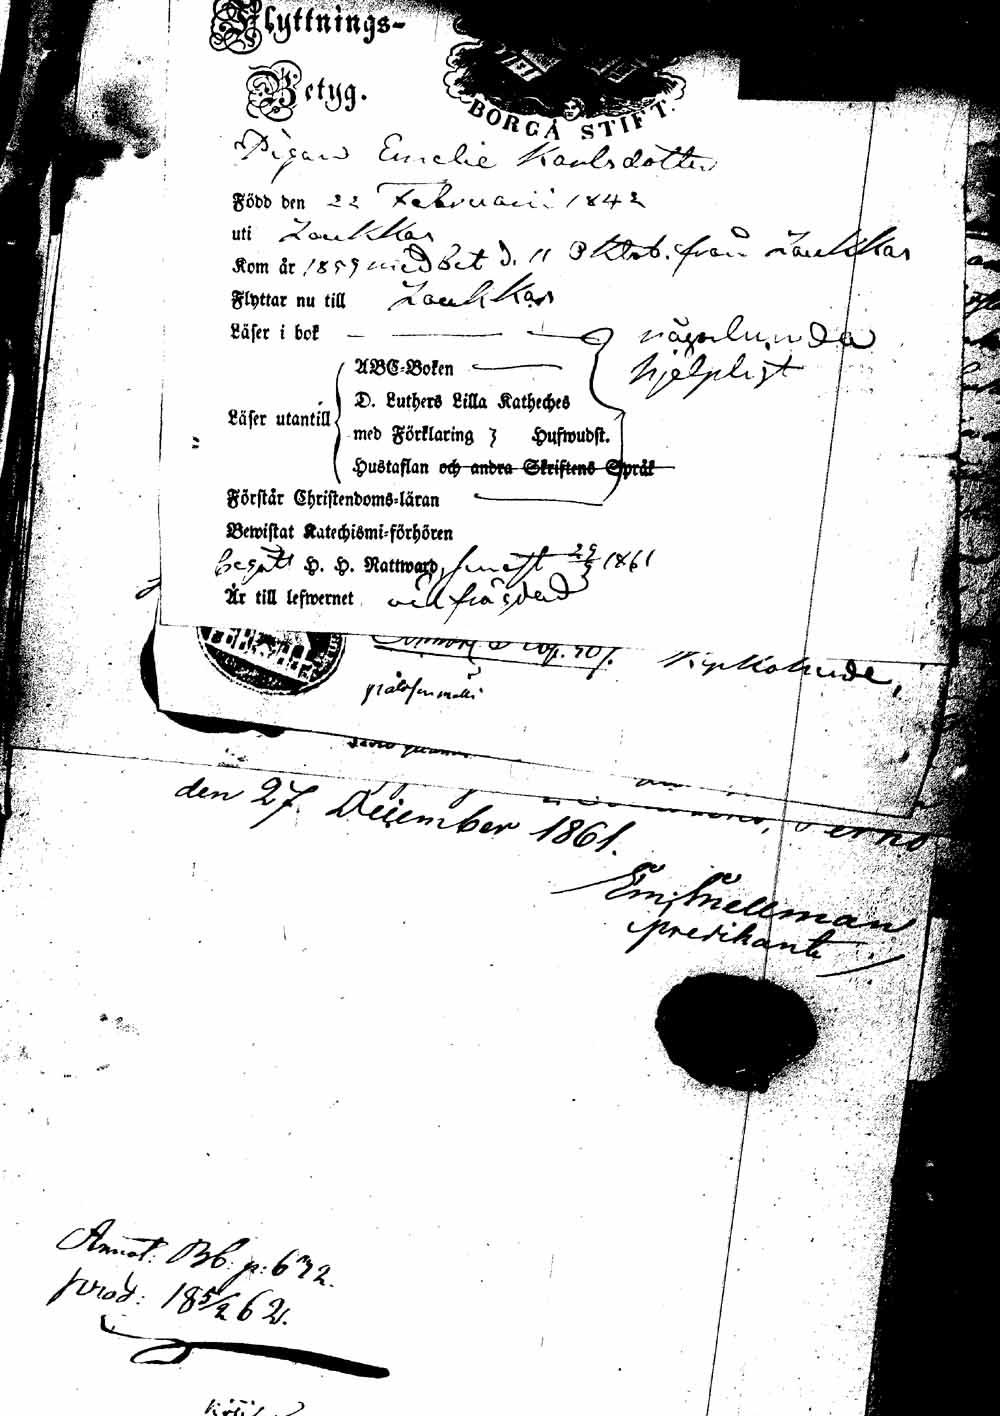 Flyttnings-
Betyg.
BORGÅ STIFT.
Pigan Emelie Karlsdotter
Född den 22 Februari 1842
uti Zaukkas
Kom år 1859 med bet d. 11 Oktob. från Zaukkas
Flyttar nu till Zaukkas
Läser i bok någorlunda
ABC-Boken hjelpligt
Läser utantill
D. Luthers Lilla Katheches
med Förklaring 3 Hufwudst.
Hustaflan och andra Skriftens Språk
Förstår Christendoms-läran
Bewistat Katechismi-förhören
begått H. H. Nattward, senast 29/9 1861
Är till lefwernet väl frägdad
den 27 December 1861.
Em. Snellman
predikant
Annot: Bb: p: 672.
prod: 18 5/2 62.